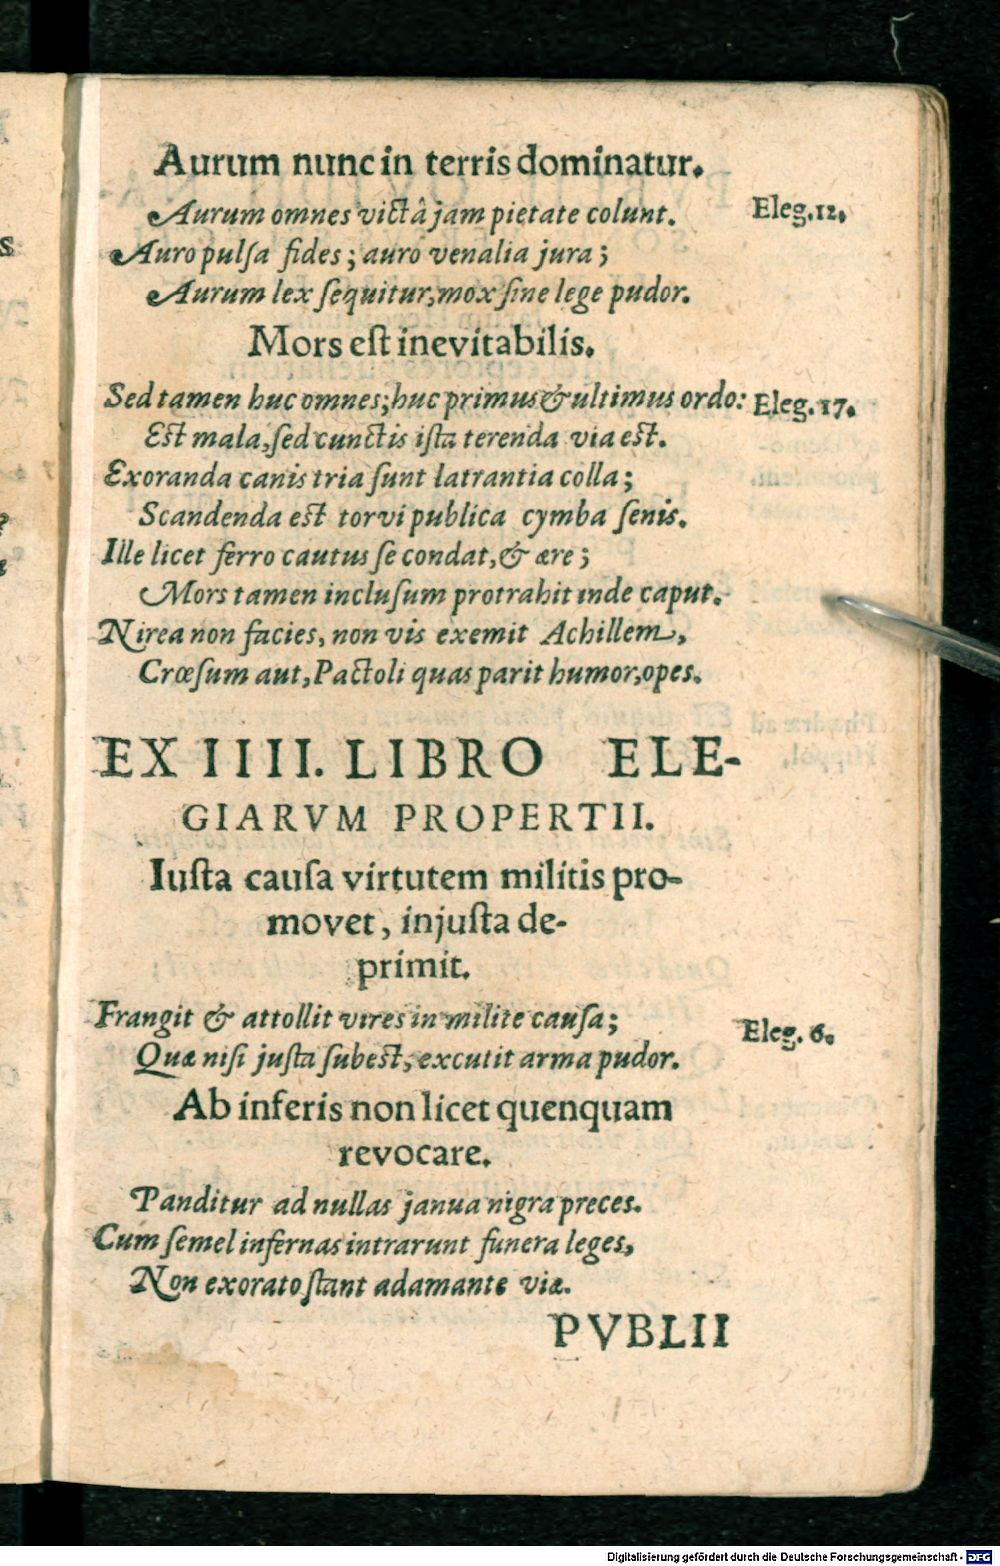 Aurum nunc in terris dominatur.
Aurum omnes victâ jam pietate colunt. Eleg. 12.
Auro pulſa fides; auro venalia jura;
Aurum lex ſequitur, mox ſine lege pudor.
Mors eſt inevitabilis.
Sed tamen huc omnes; huc primus & ultimus ordo: Eleg. 17.
Est mala, ſed cunctis iſta terenda via est.
Exoranda canis tria ſunt latrantia colla;
Scandenda est torvi publica cymba ſenis.
Ille licet ferro cautus ſe condat, & ære;
Mors tamen incluſum protrahit inde caput.
Nirea non facies, non vis exemit Achillem,
Crœſum aut, Pactoli quas parit humor, opes.
EX IIII. LIBRO ELE-
GIARVM PROPERTII.
Iuſta cauſa virtutem militis pro-
movet, injuſta de-
primit.
Frangit & attollit vires in milite cauſa;
Quæ niſi juſta ſubest, excutit arma pudor. Eleg. 6.
Ab inferis non licet quenquam
revocare.
Panditur ad nullas janua nigra preces.
Cum ſemel infernas intrarunt funera leges,
Non exorato ſtant adamante viæ.
PVBLII
Digitalisierung gefördert durch die Deutsche Forschungsgemeinschaft - DFG